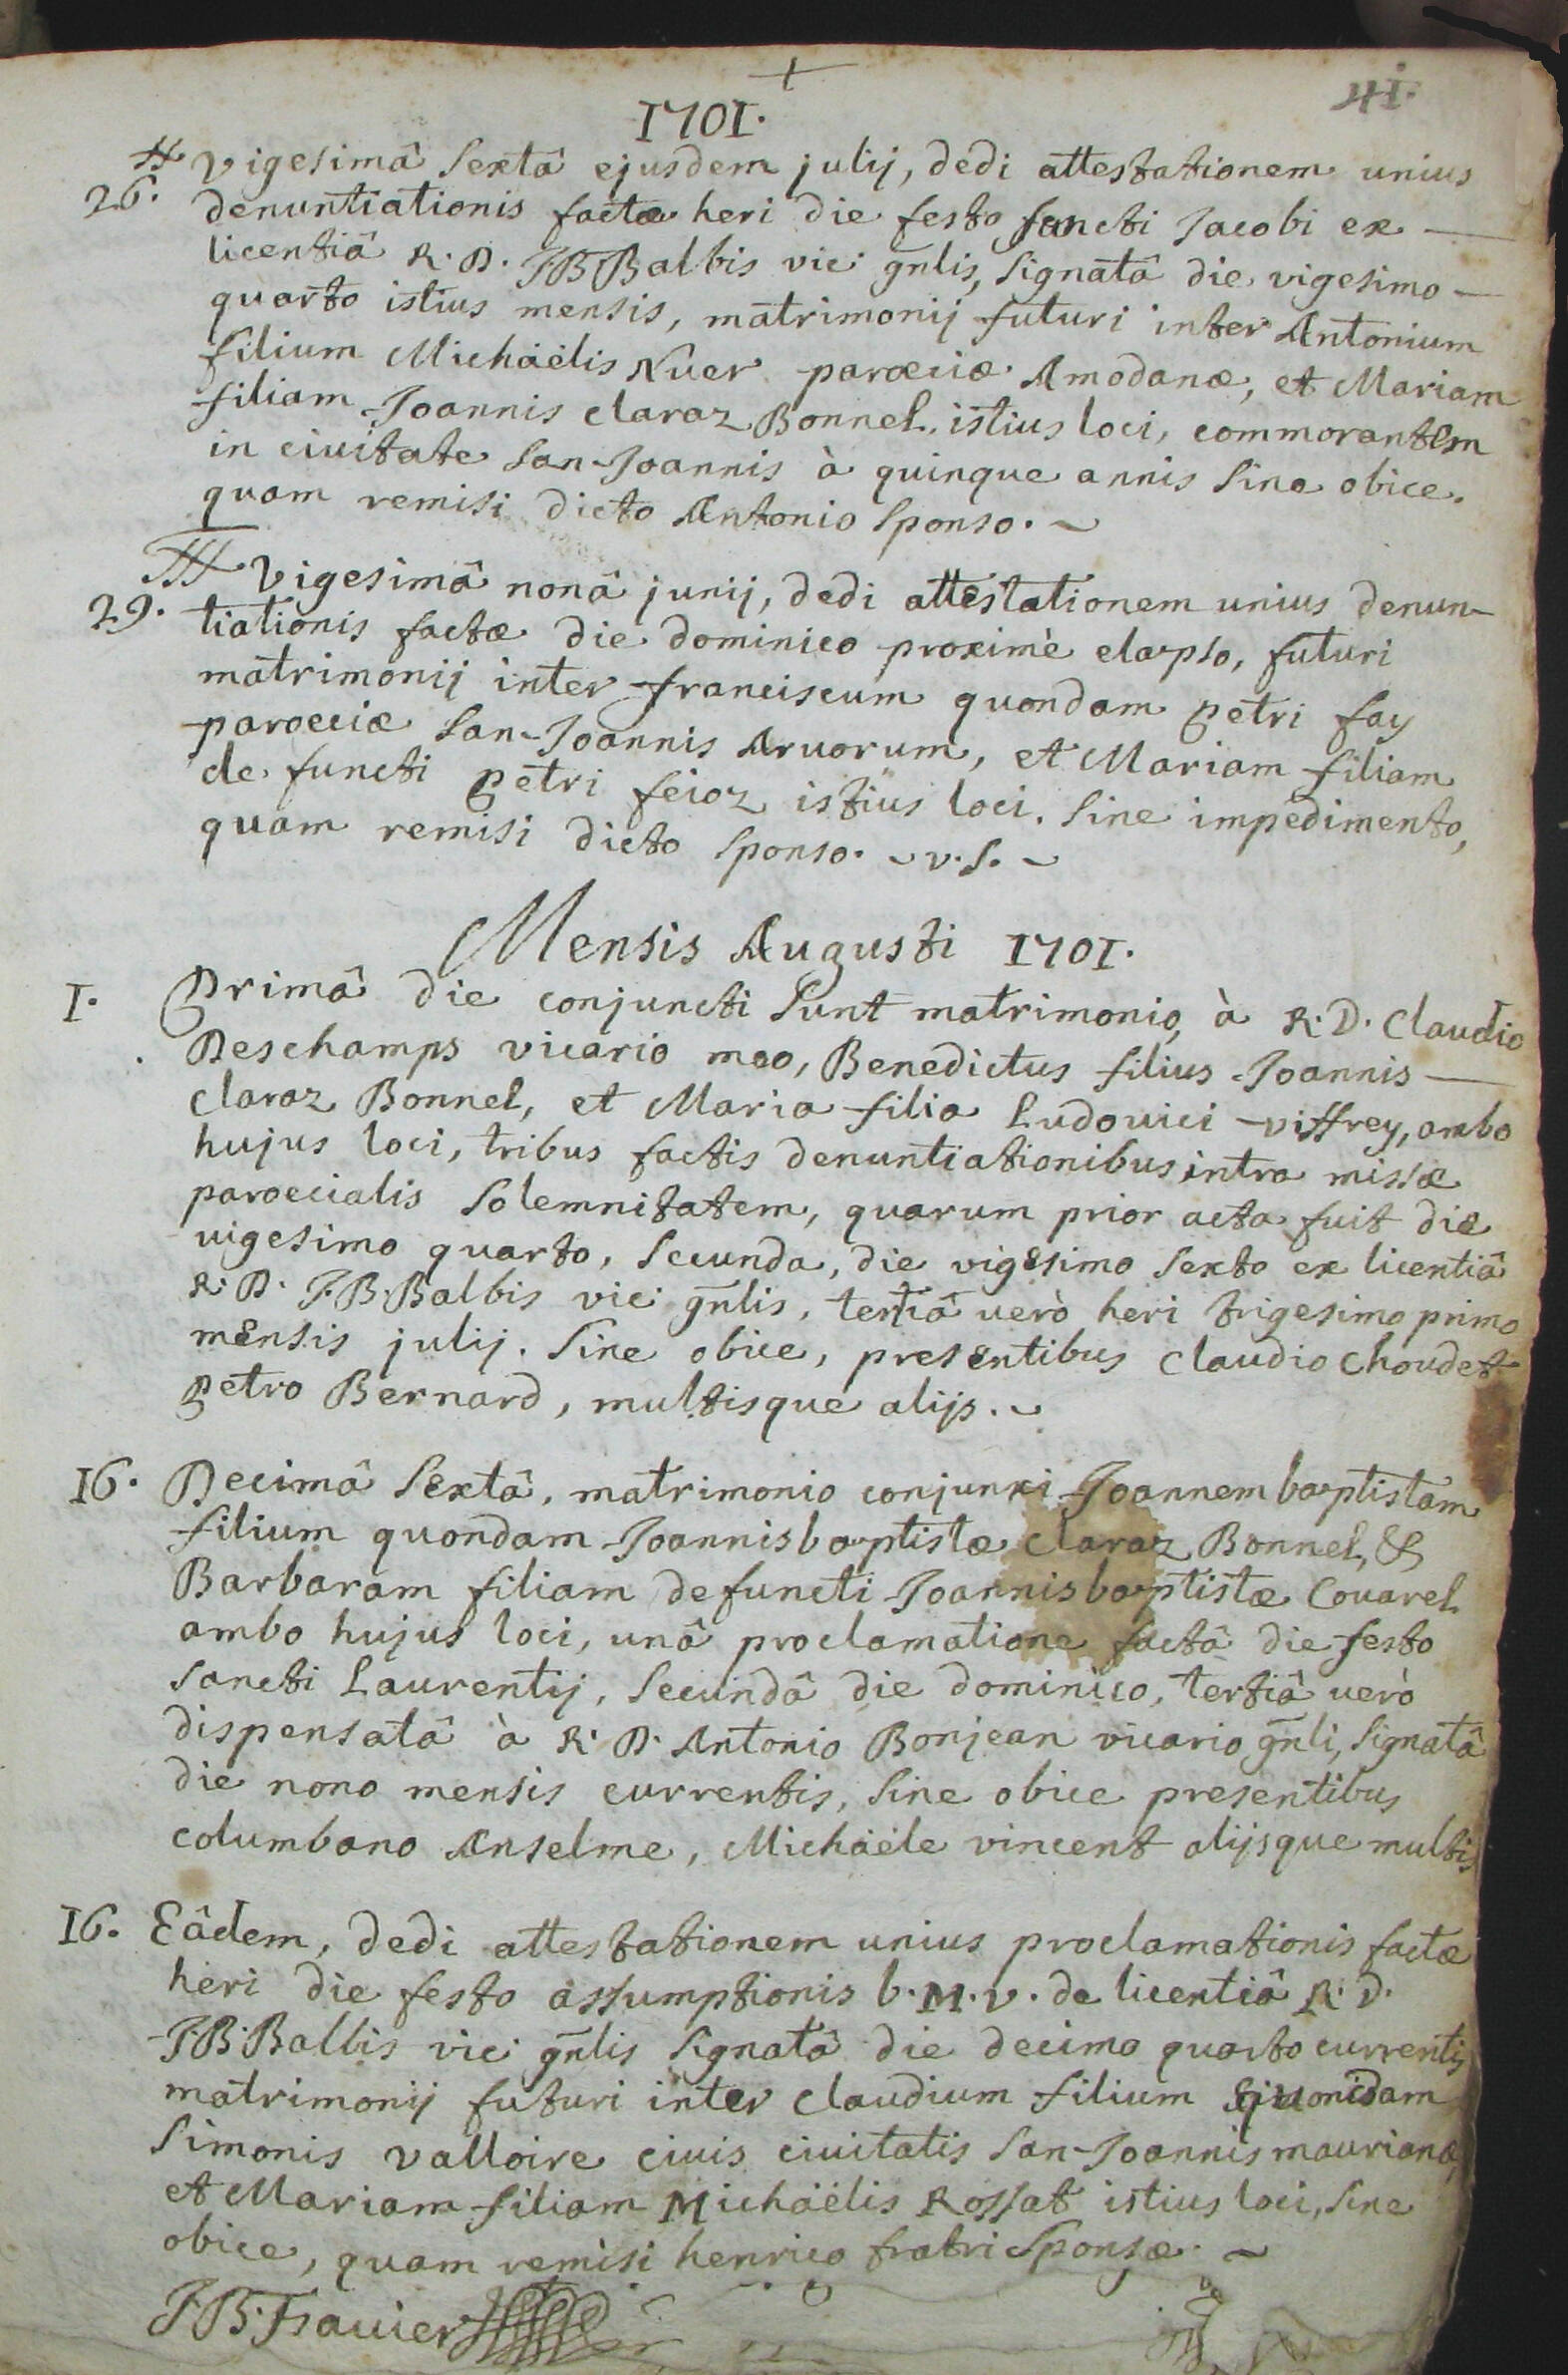 +
1701.
41.
# Vigesimâ Sextâ ejusdem julij, dedi attestationem unius
26. denuntiationis factæ heri die festo sancti Jacobi ex
licentiâ R. D. JB Balbis vic: gn̄lis, signatâ die vigesimo
quarto istius mensis, matrimonij futuri inter Antonium
filium Michäelis Nuer parœciæ Amodanæ, et Mariam
filiam Joannis claraz Bonnel istius loci, commorantem
in ciuitate San-Joannis à quinque annis sine obice.
quam remisi dicto Antonio sponso. ~
Vigesimâ nonâ junij, dedi attestationem unius denun-
29. tiationis factæ die dominico proximè elapso, futuri
matrimonij inter franciscum quondam petri fay
parœciæ San-Joannis Aruorum, et Mariam filiam
defuncti petri feioz istius loci. Sine impedimento,
quam remisi dicto sponso. ~ v. s. ~
Mensis Augusti 1701.
I. Primâ die conjuncti sunt matrimonio, à R. D. Claudio
Deschamps vicario meo, Benedictus filius Joannis
claraz Bonnel, et Maria filia Ludouici viffrey, ambo
hujus loci, tribus factis denuntiationibus intra missæ
parœcialis solemnitatem, quarum prior acta fuit die
uigesimo quarto, secunda, die vigesimo sexto ex licentiâ
R. D. J.B. Balbis vic: gn̄lis, tertiâ uerò heri trigesimo primo
mensis julij. Sine obice, presentibus Claudio Choudet
petro Bernard, multisque alijs. ~
16. Decimâ Sextâ, matrimonio conjunxi Joannembaptistam
filium quondam Joannisbaptistæ claraz Bonnel, &
Barbaram filiam defuncti Joannisbaptistæ Couarel
ambo hujus loci, unâ proclamatione factâ die festo
sancti Laurentij, secundâ die dominico, tertiâ uerò
dispensatâ à R. D. Antonio Bonjean vicario gn̄li, signatâ
die nono mensis currentis, sine obice presentibus
columbano Anselme, Michäele vincent alijsque multis
16. Eâdem, dedi attestationem unius proclamationis factæ
heri die festo assumptionis b. M. v. de licentiâ R. D.
J.B. Balbis vic: gn̄lis signatâ die decimo quarto currentis
matrimonij futuri inter claudium filium quondam
Simonis valloire ciuis ciuitatis San-Joannis maurianæ,
et Mariam filiam Michäelis Rossat istius loci, sine
obice, quam remisi henrico fratri sponsæ. ~
JB. Frauier